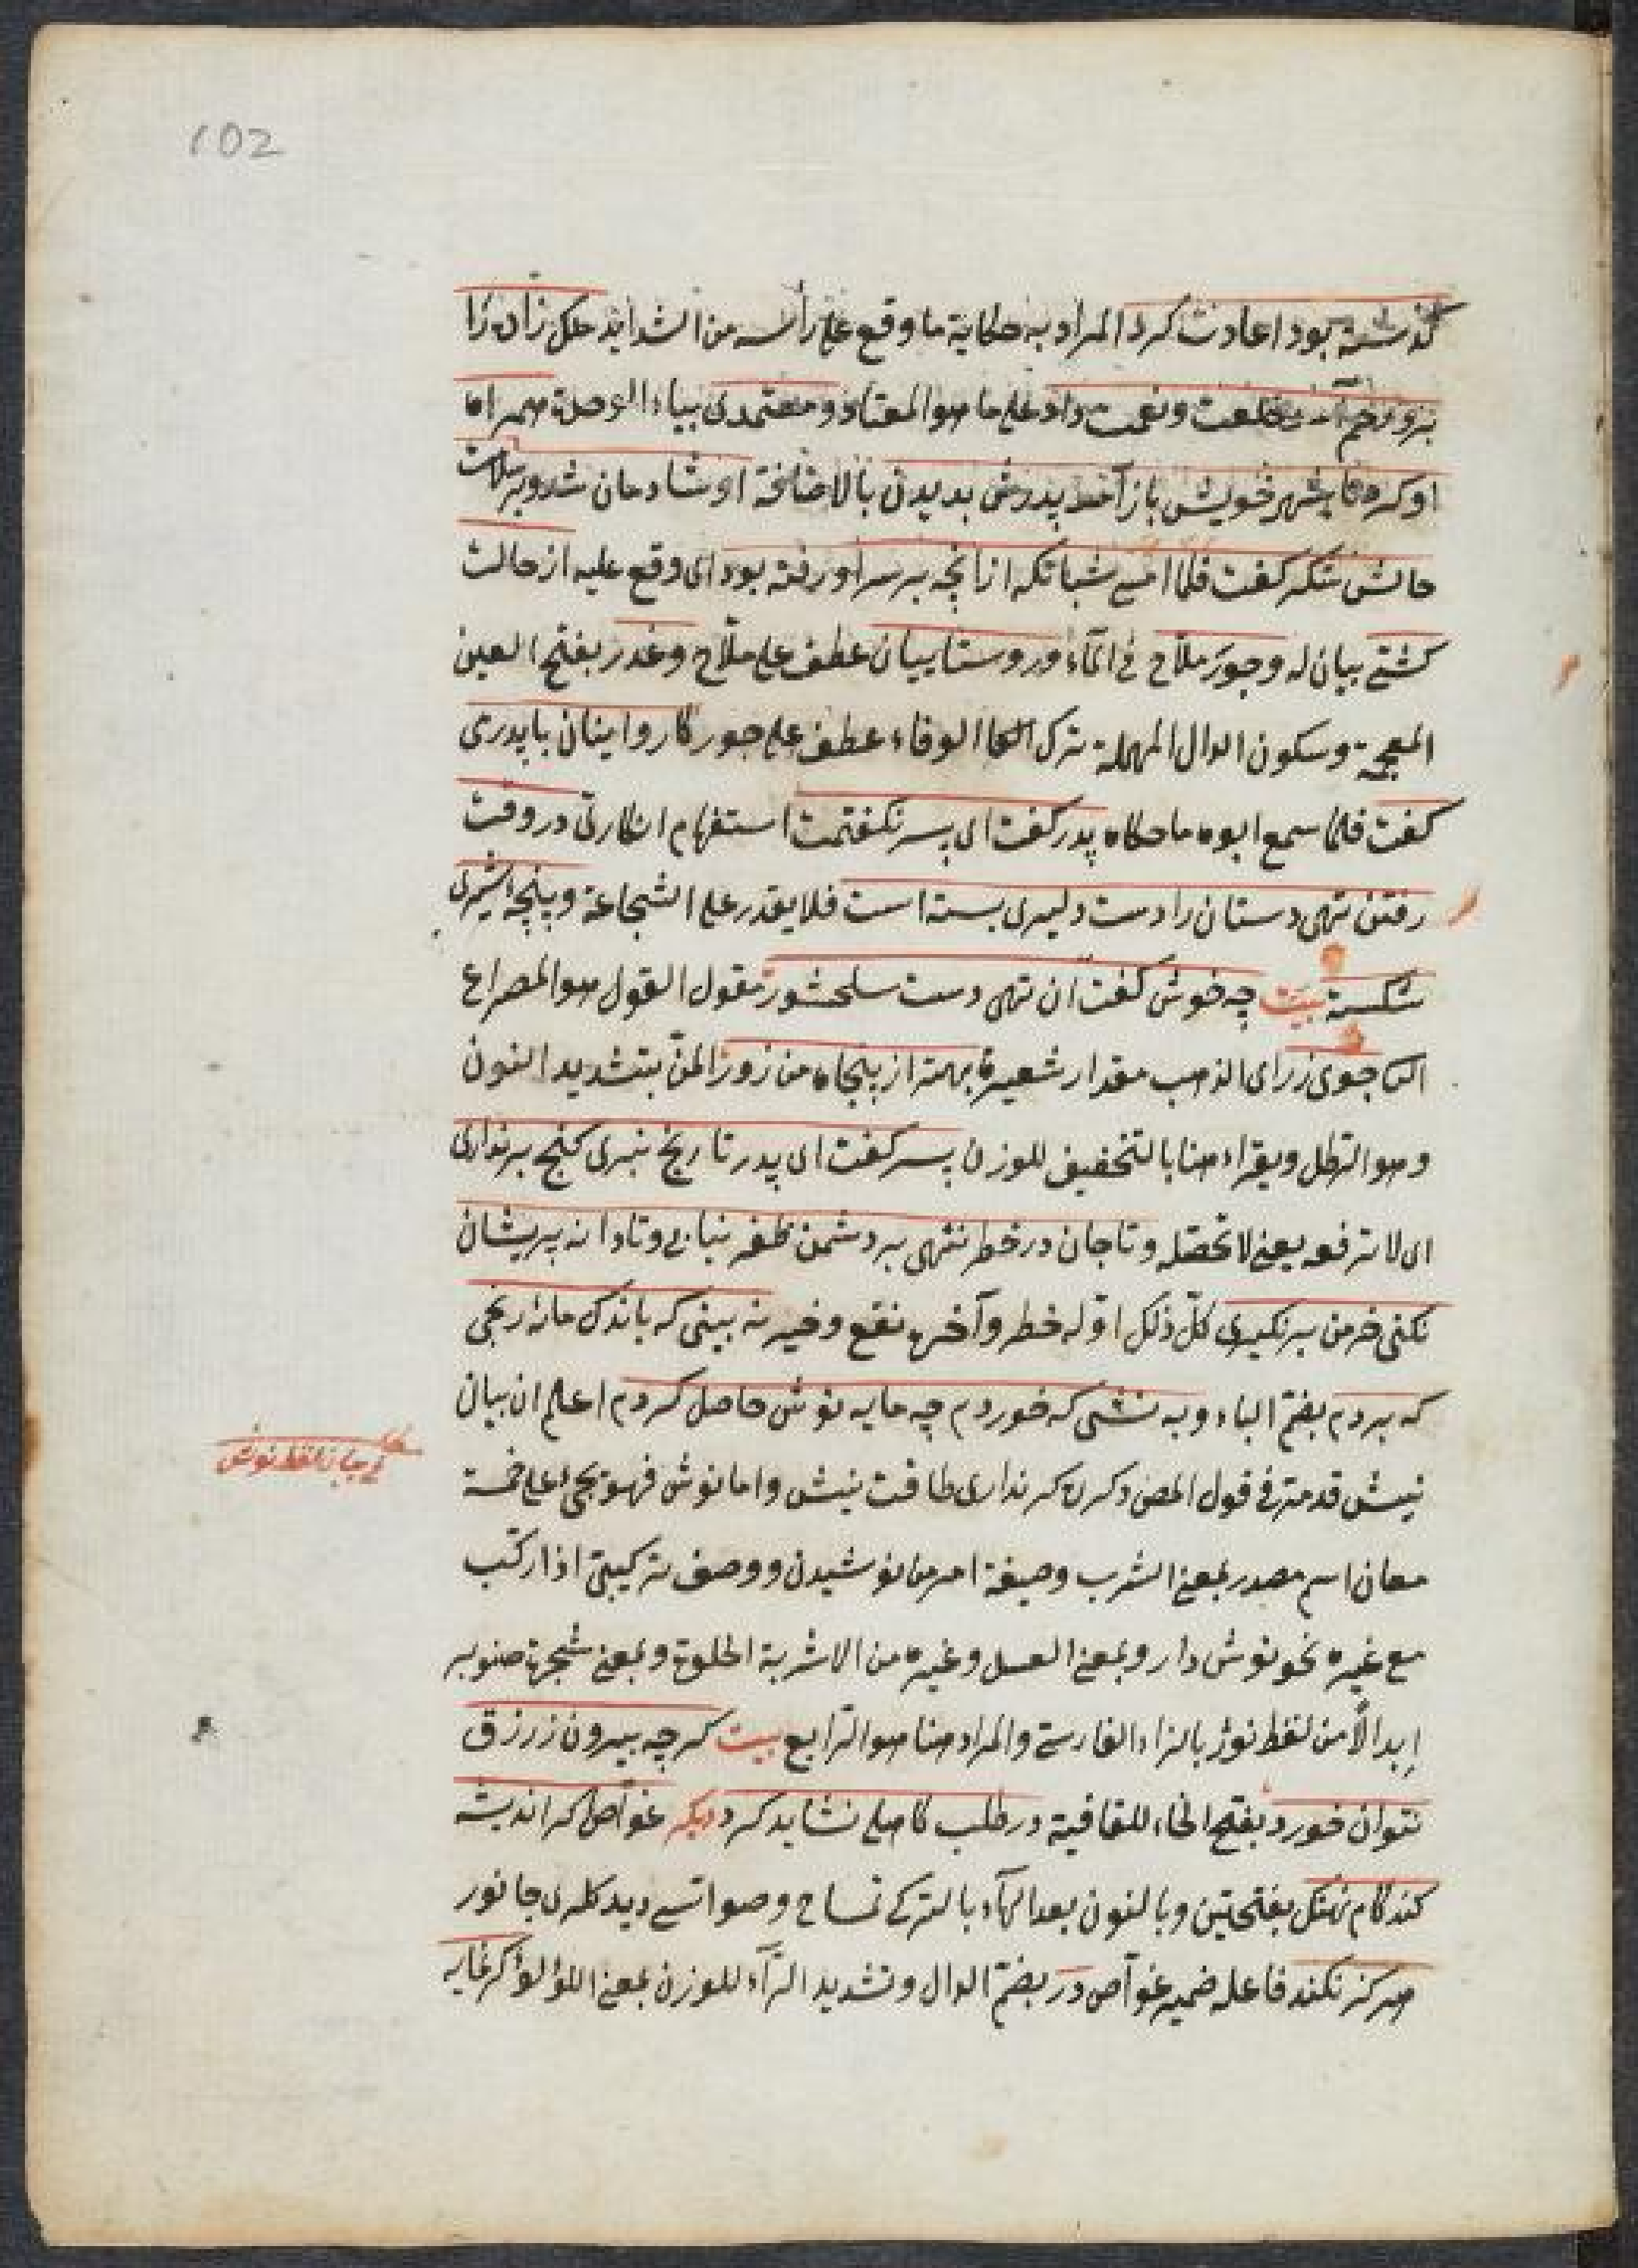 102
كذشته بود اعادت كرد المراد به حكاية ما وقع على رأسه من الشدايد ملك زاده را
برو رحم آمد خلعت ونعمت داد على ما هو المعتاد ومعتمدى بياء الوحدة همراه
او كرد تا بشهر خويش باز آمد پدرش بديدن بالاضافة او شادمان شد وبر سلامت
حالش شكر كفت فلما امسى شبانكه از انچه بر سر او رفته بود اى وقع عليه از حالت
كشتى بيان له وجور ملاح فى الماء وروستاييان عطف على ملاح وغدر بفتح الغين
المعجمة وسكون الدال المهملة ترك الوفاء عطف على جور كاروانيان با پدرى
كفت فلما سمع ابوه ما حكاه پدر كفت اى پسر نكفتمت استفهام انكارى در وقت
رفتن تهى دستان را دست دليرى بسته است فلا يقدر على الشجاعة وپنچه شيرى
شكسته بيت چه خوش كفت ان تهى دست سلحشور مقول القول هو المصراع
الثا جوى زر اى الذهب مقدار شعيرة بهتر از پنجاه من زور المن بتشديد النون
وهو الرطل ويقراء هنا بالتخفيف للوزن پسر كفت اى پدر تا رنج نبرى كنج برندارى
اى لا ترفعه يعنى لا تحصله وتا جان در خطر ننهى بر دشمن ظفر نيابى وتا دانه پريشان
نكنى خرمن برنكيرى كل ذلك اوله خطر وآخره نفع وخير نه بينى كه باندك مايه رنجى
كه بردم بضم الباء وبه نيشى كه خوردم چه مايه نوش حاصل كردم اعلم ان بيان
نيش قد مر فى قول المص دكر ره كر ندارى طاقت نيش واما نوش فهو يجئ على خمسة
معان اسم مصدر بمعنى الشرب وصيغة امر من نوشيدن ووصف تركيبى اذا ركب
مع غيره نحو نوش دار وبمعنى العسل وغيره من الاشربة الحلوة وبمعنى شجرة صنوبر
ابدالا من لفظ نوژ بالزاء الفارسة والمراد هنا هو الرابع بيت كرچه بيرون ز رزق
نتوان خورد بفتح الخاء للقافية در طلب كاهلى نشايد كرد ديكر غواص كر انديشه
كند كام نهنك بفتحتين وبالنون بعد الهاء بالتركى تمساح وصو اتسى ديدكلرى جانور
هركز نكند فاعله ضمير غواص در بضم الدال وتشديد الراء للوزن بمعنى اللؤلؤ كرانمايه
فى بيان لفظ نوش